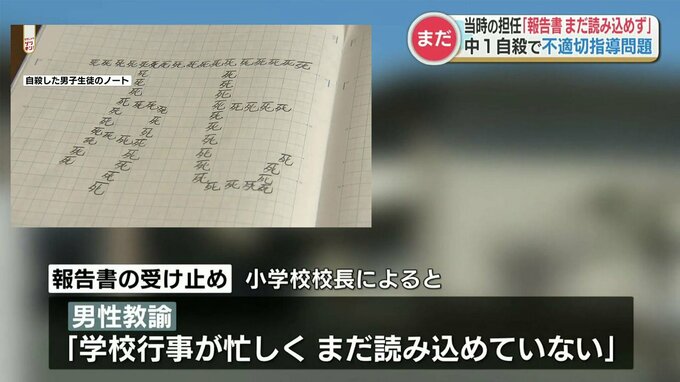 まだ
当時の担任「報告書 まだ読み込めず」
中1自殺で不適切指導問題
自殺した男子生徒のノート
死死死死死死死死死死死死死死死死
死 死
死 死
死死死死死 死死死死死
死 死 死
死 死 死
死死死死 死
死 死 死 死
死 死 死
死 死 死
死 死死死死死
報告書の受け止め 小学校校長によると
男性教諭
「学校行事が忙しく まだ読み込めていない」